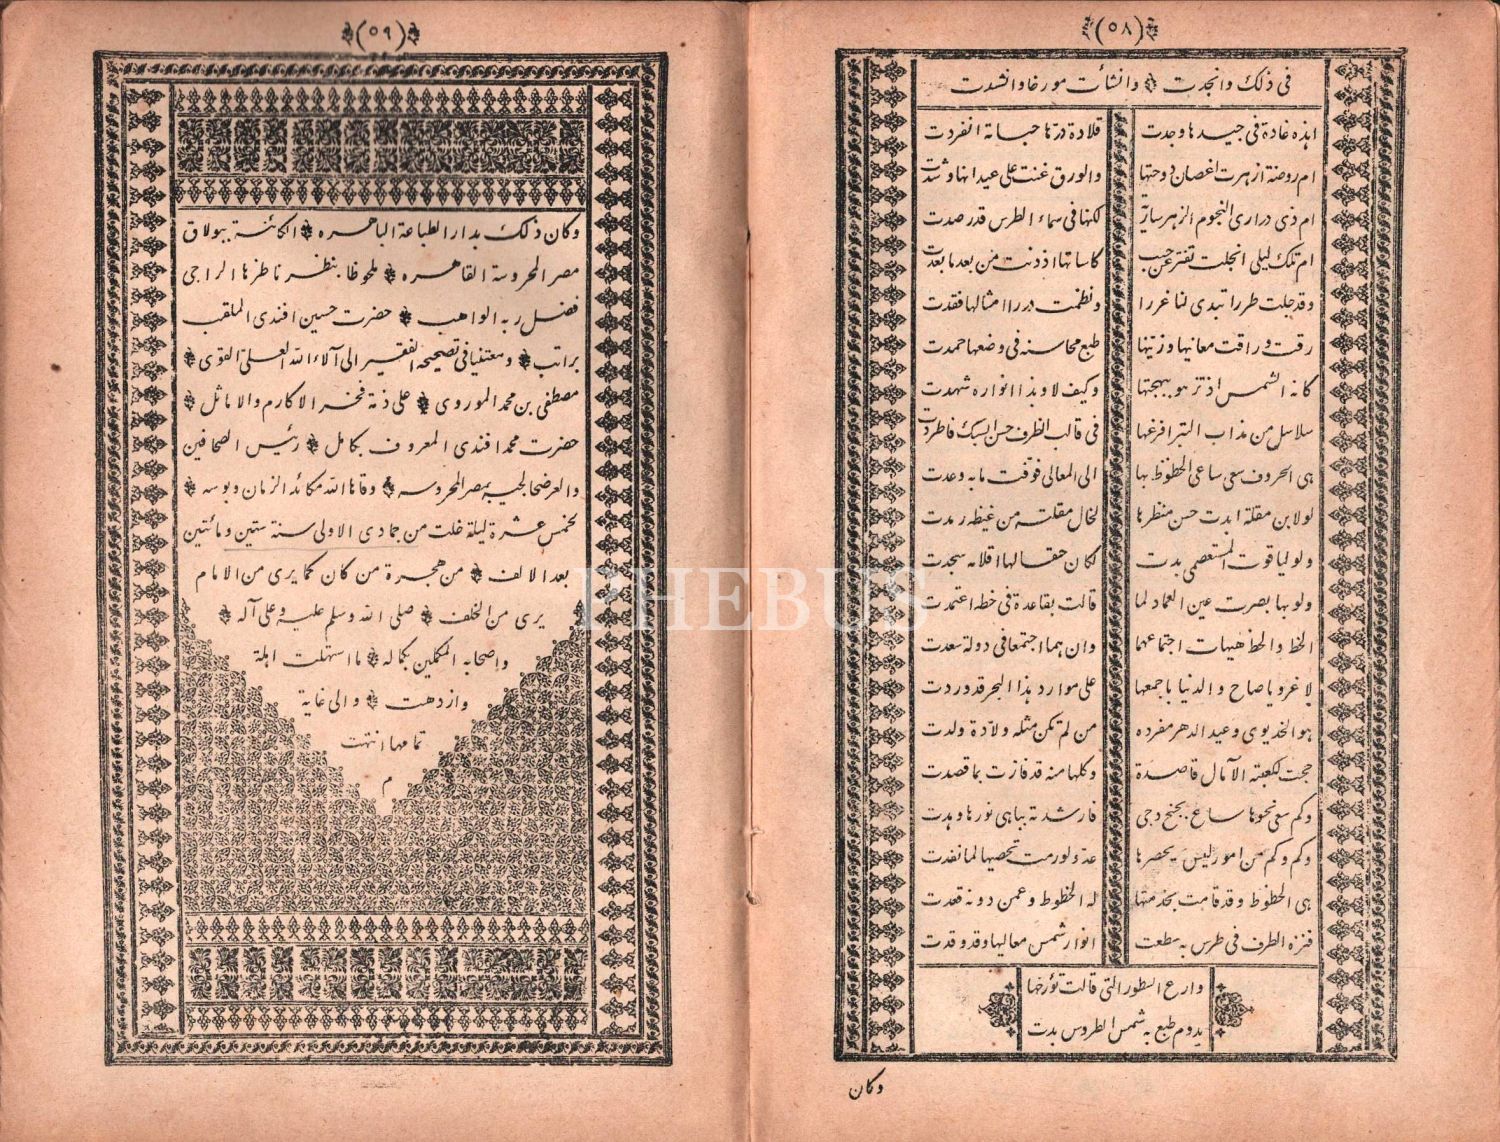 (٥٨)
فى ذلك وانجدت وانشأت مورخا وانشدت
اهذه غادة فى جيدها وجدت قلادة درها حسانة انفردت
ام روضة ازهرت اغصان دوحتها والورق غنت على عيدانها وشدت
ام ذى درارى النجوم الزهر سارية لكنها فى سماء الطرس قد رصدت
ام تلك ليلى انجلت تفتر عن حبب كاساتها اذ دنت من بعد ما بعدت
وقد جلت طررا تبدى لنا غررا ونظمت دررا امثالها فقدت
رقت وراقت معانيها وزينها طبع محاسنه فى وضعها حمدت
كانه الشمس اذ تزهو ببهجتها وكيف لا وبذا انواره شهدت
سلاسل من مذاب التبر افرغها فى قالب الظرف حسن السبك فاطردت
هى الحروف سعى ساعى الحظوظ بها الى المعالى فوفت ما به وعدت
لو لابن مقلة ابدت حسن منظرها لخال مقلته من غيظه رمدت
ولو لياقوت المستعصمى بدت لكان حقا لها اقلامه سجدت
ولو بها بصرت عين العماد لما قالت بقاعدة فى خطه اعتمدت
الخط والحظ هيهات اجتماعهما وان هما اجتمعا فى دولة سعدت
لا غرو يا صاح والدنيا باجمعها على موارد هذا البحر قد وردت
هو الخديوى وعيد الدهر مفرده من لم تكن مثله ولادة ولدت
حجت لكعبته الآمال قاصدة وكلها منه قد فازت بما قصدت
وكم سعى نحوها ساع بجنح دجى فارشدته بباهى نورها وهدت
وكم وكم من امور ليس يحصرها عد ولو رمت تحصيها لما نفدت
هى الحظوظ وقد قامت بخدمتها له الخطوط وعمن دونه قعدت
فنزه الطرف فى طرس به سطعت انوار شمس معاليها وقد وقدت
وارع السطور التى قالت تؤرخها
يدوم طبع به شمس الطروس بدت
وكان
(٥٩)
وكان ذلك بدار الطباعة الباهره الكائنة ببولاق
مصر المحروسة القاهره ملحوظا بنظر ناظرها الراجى
فضل ربه الواهب حضرت حسين افندى الملقب
براتب ومعتنيا فى تصحيحه الفقير الى آلاء الله العلى القوى
مصطفى بن محمد الموروى على ذمة فخر الاكارم والاماثل
حضرت محمد افندى المعروف بكامل رئيس الصحافين
والعرضحالجيه بمصر المحروسه وقاها الله مكائد الزمان وبوسه
لخمس عشرة ليلة خلت من جمادى الاولى سنة ستين ومائتين
بعد الالف من هجرة من كان كما يرى من الامام
يرى من الخلف صلى الله وسلم عليه وعلى آله
واصحابه المكملين بكماله ما استهلت اهلة
وازدهت والى غاية
تمامها انتهت
م
PHEBUS